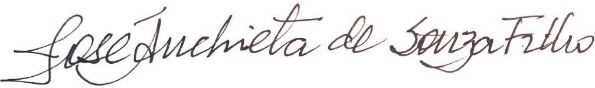 José Anchieta de Souza Filho